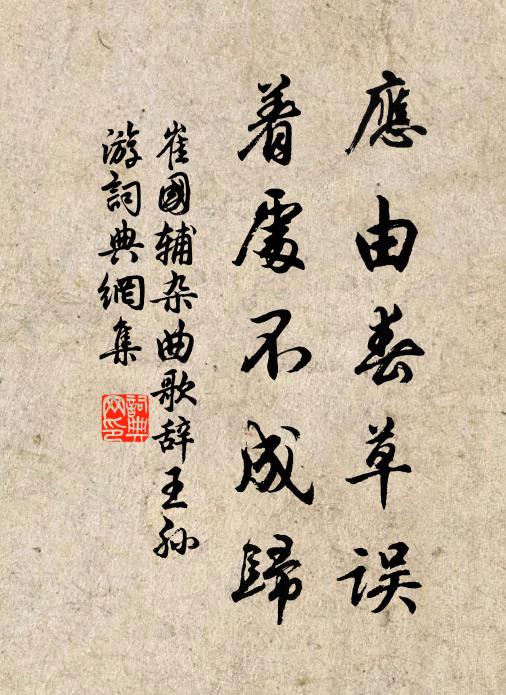 應由春草误
着處不成歸
崔國辅杂曲歌辞王孙
游詞典網集
詞典网印